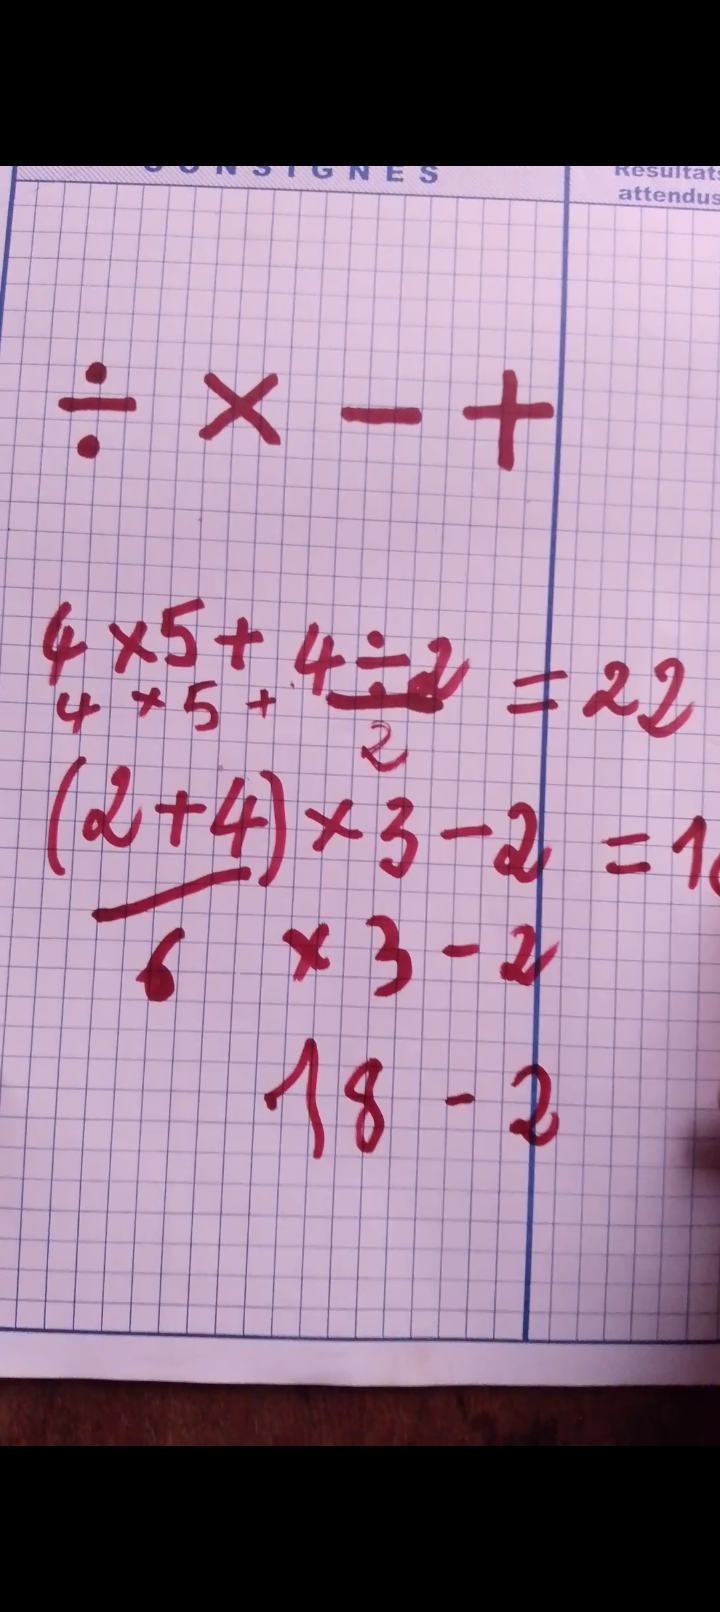 CONSIGNES
Résultats
attendus
÷ × − +
4 × 5 + 4 ÷ 2 = 22
4 × 5 + 2
(2 + 4) × 3 − 2 = 1
6 × 3 − 2
18 − 2